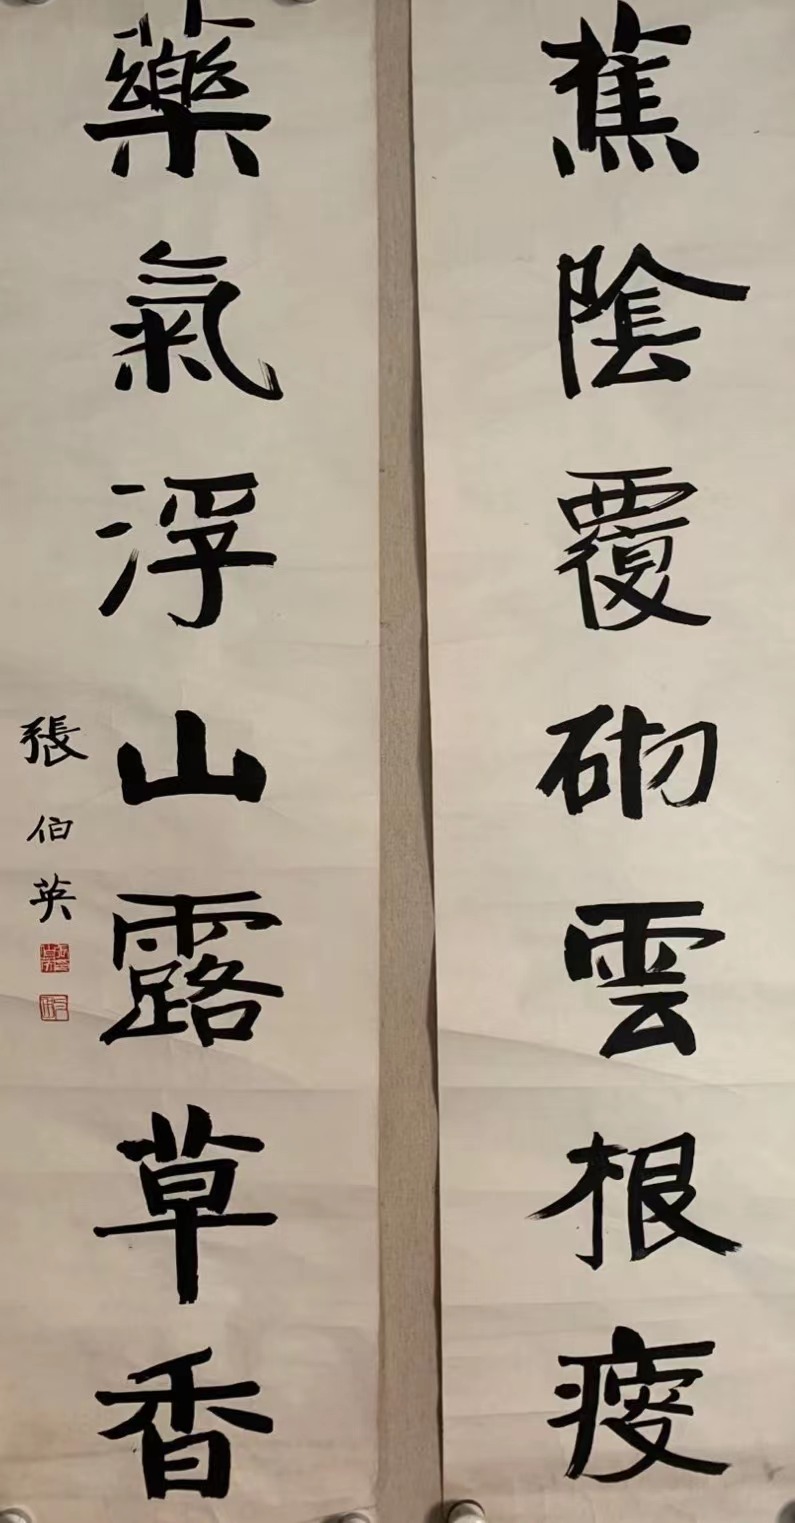 蕉陰覆砌雲根瘦
藥氣浮山露草香
張伯英